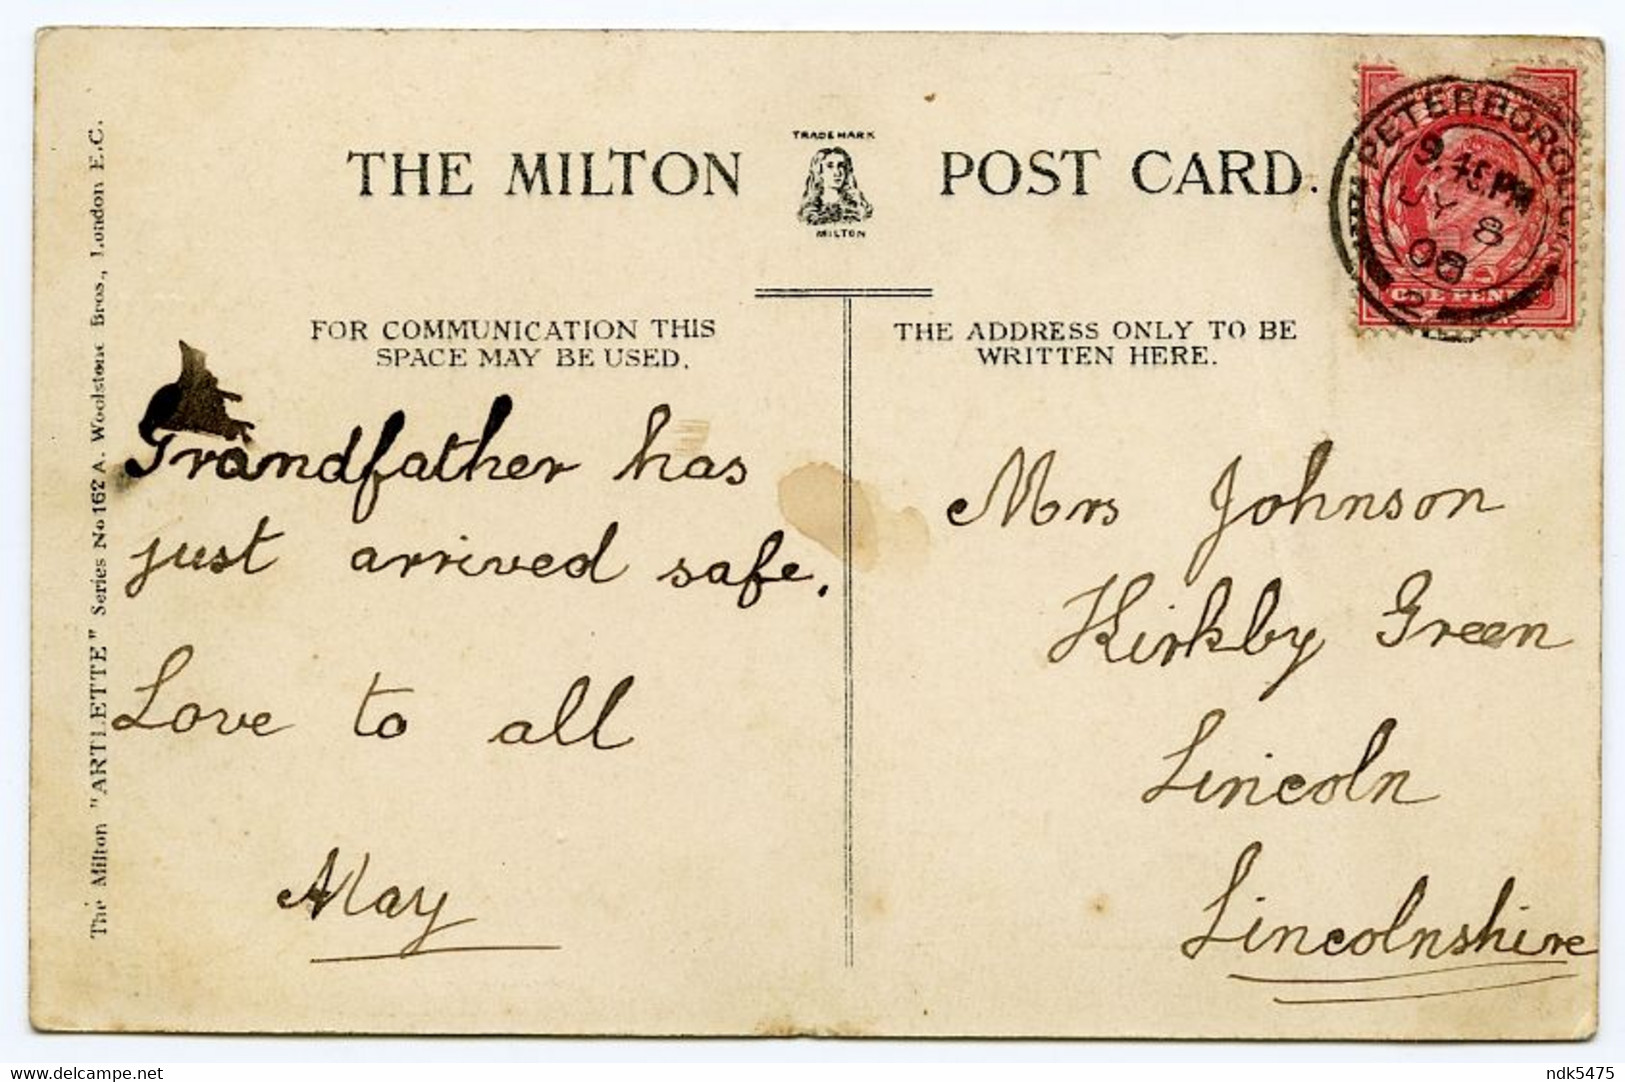 THE MILTON POST CARD.
TRADE MARK
MILTON
FOR COMMUNICATION THIS
SPACE MAY BE USED.
THE ADDRESS ONLY TO BE
WRITTEN HERE.
The Milton "ARTLETTE" Series No 162 A. Woolstone Bros., London E.C.
Grandfather has
just arrived safe.
Love to all
May
Mrs Johnson
Kirkby Green
Lincoln
Lincolnshire
PETERBOROUGH
9.45 PM
JY 8
08
2
ONE PENNY
delcampe.net
ndk5475